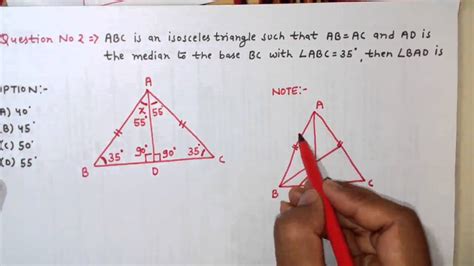 Question No 2 => ABC is an isosceles triangle such that AB=AC and AD is
the median to the base BC with ∠ABC=35°, then ∠BAD is
IPTION:-
A) 40°
(B) 45°
(C) 50°
(D) 55°
A
x 55°
55°
35° 90° 90° 35°
B D C
NOTE:-
A
B C